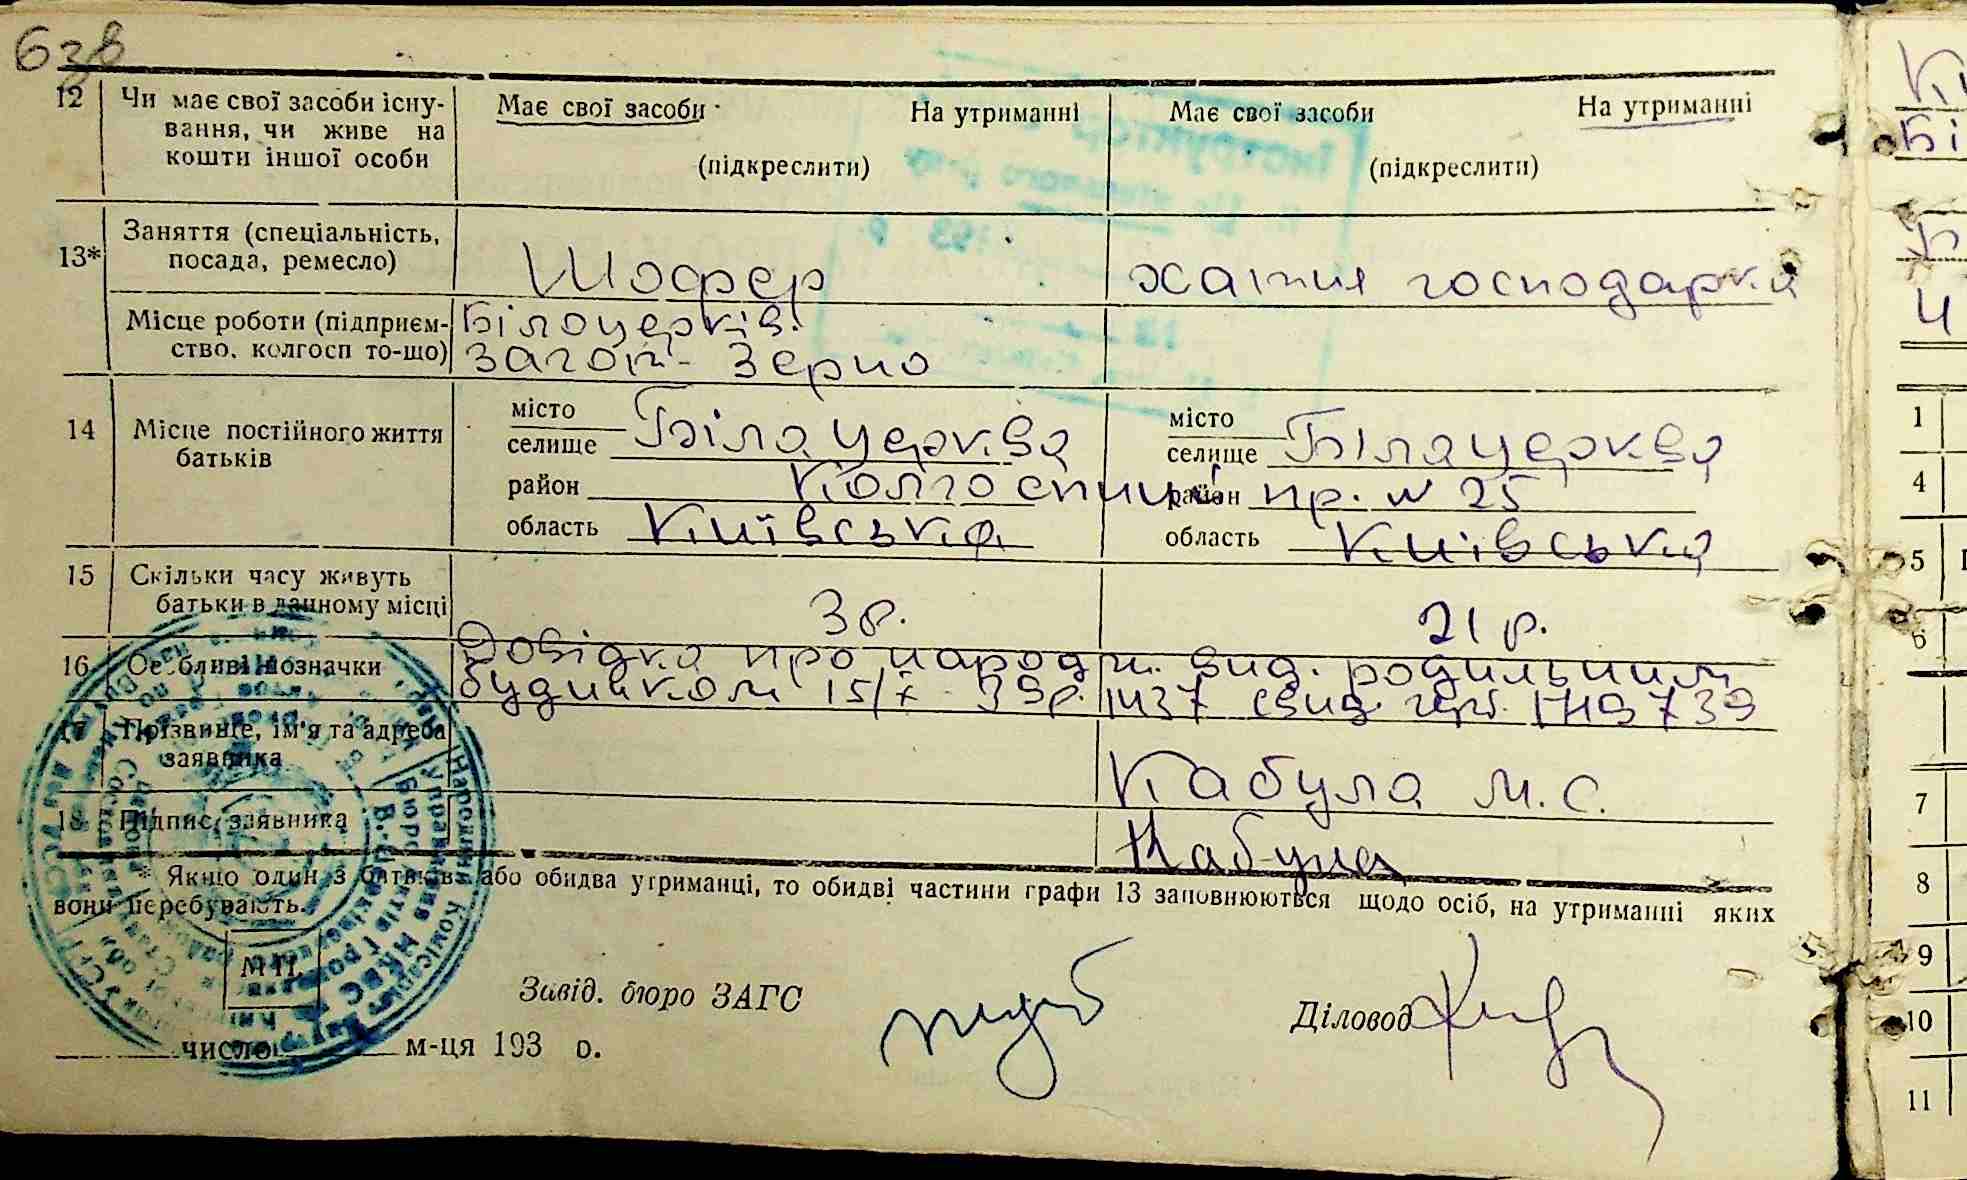 6зв
12 Чи має свої засоби існу- Має свої засоби На утриманні Має свої засоби На утриманні
вання, чи живе на
кошти іншої особи (підкреслити) (підкреслити)
13* Заняття (спеціальність,
посада, ремесло) Шофер хатня господарка
Місце роботи (підприєм- Білоцерків.
ство, колгосп то-що) Загот-Зерно
14 Місце постійного життя місто Біла церква місто Біла церква
батьків селище селище
район Колгоспний район пр. № 25
область Київська область Київська
15 Скільки часу живуть
батьки в данному місці 3 р. 21 р.
16 Особливі позначки Довідка про народж. вид. родильним
будинком 15/X 39р. 1437 свид.
17 Прізвище, ім'я та адреса
заявника Кабула М. С.
18 Підпис заявника Кабула
* Якщо один з батьків або обидва утриманці, то обидві частини графи 13 заповнюються щодо осіб, на утриманні яких
вони перебувають.
М.П.
Завід. бюро ЗАГС Діловод
число м-ця 193 р.
1
4
5
6
7
8
9
10
11